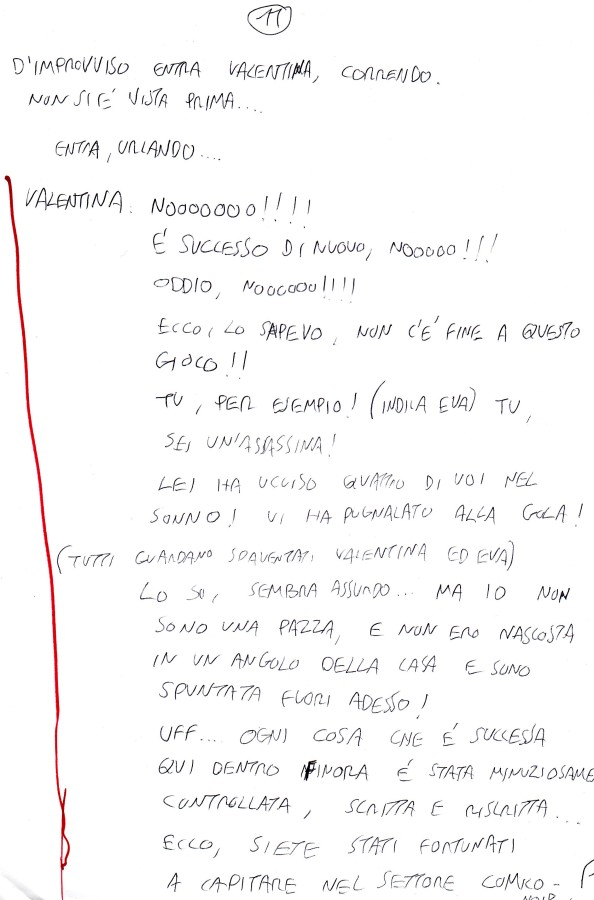 11
D'IMPROVVISO ENTRA VALENTINA, CORRENDO.
NON SI E' VISTA PRIMA....
ENTRA, URLANDO....
VALENTINA: NOOOOOOO!!!!
E' SUCCESSO DI NUOVO, NOOOOO!!!
ODDIO, NOOOOOO!!!!
ECCO, LO SAPEVO, NON C'E' FINE A QUESTO
GIOCO!!
TU, PER ESEMPIO! (INDICA EVA) TU,
SEI UN'ASSASSINA!
LEI HA UCCISO QUATTRO DI VOI NEL
SONNO! VI HA PUGNALATO ALLA GOLA!
(TUTTI GUARDANO SPAVENTATI VALENTINA ED EVA)
LO SO, SEMBRA ASSURDO... MA IO NON
SONO UNA PAZZA, E NON ERO NASCOSTA
IN UN ANGOLO DELLA CASA E SONO
SPUNTATA FUORI ADESSO!
UFF.... OGNI COSA CHE E' SUCCESSA
QUI DENTRO FINORA E' STATA MINUZIOSAME
CONTROLLATA, SCRITTA E RISCRITTA...
ECCO, SIETE STATI FORTUNATI
A CAPITARE NEL SETTORE COMICO-
NOIR